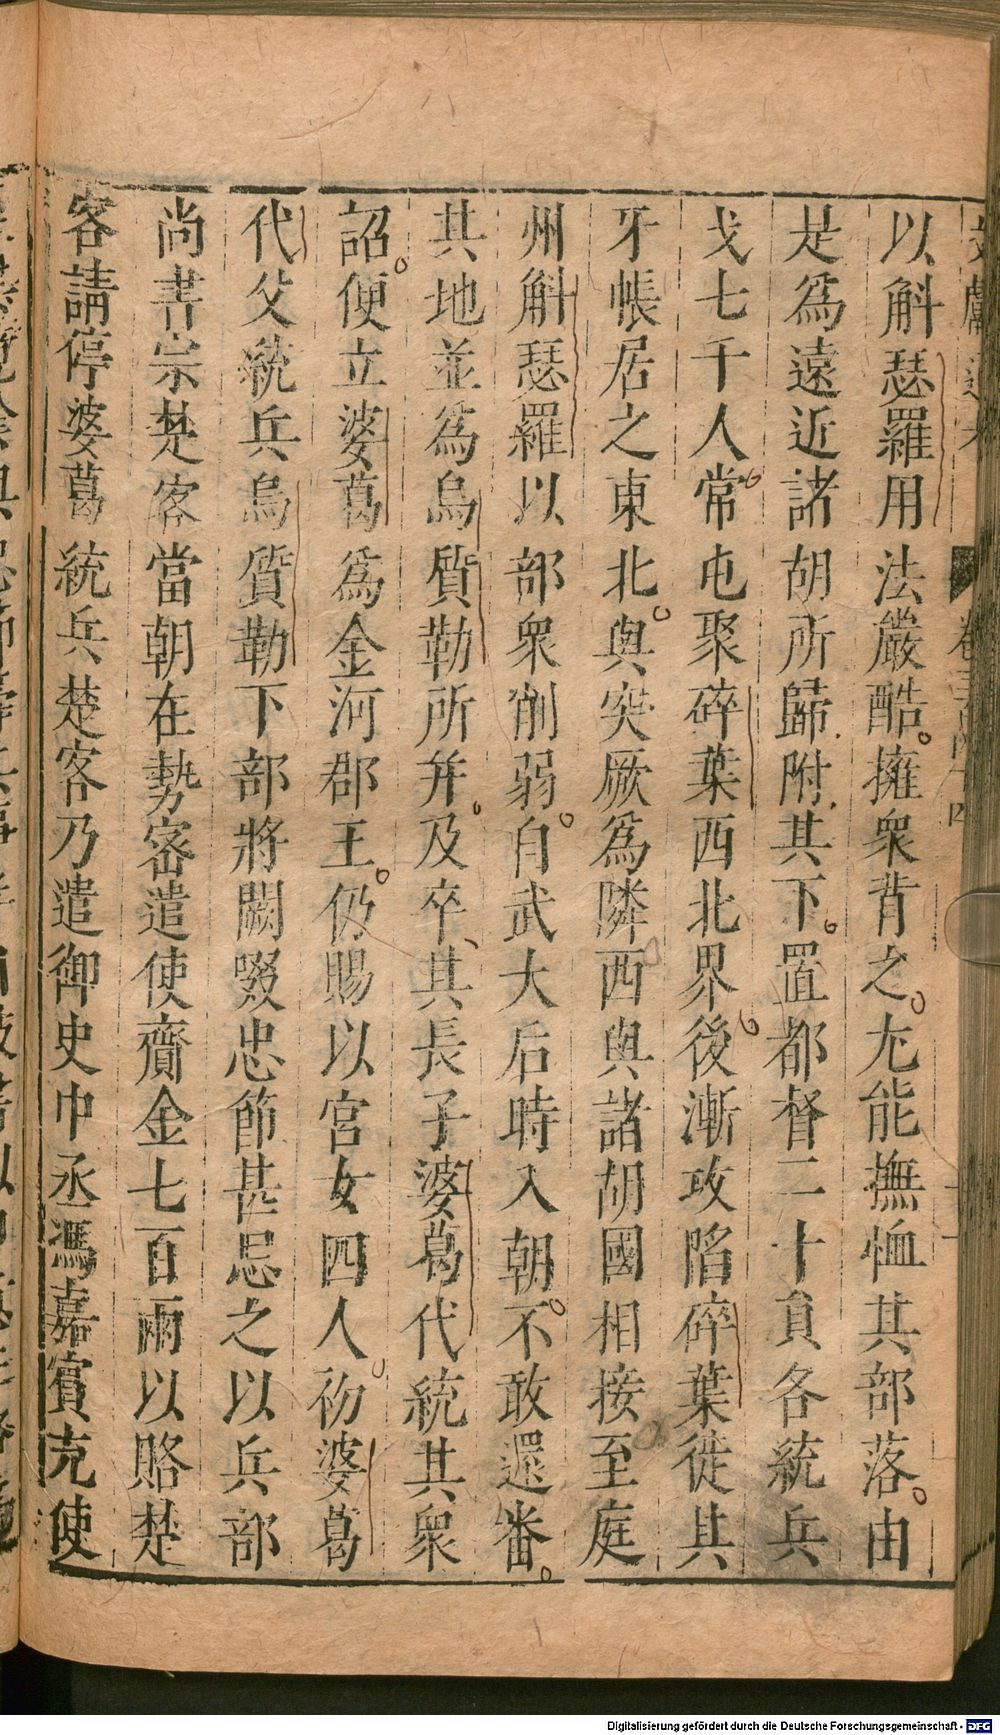 以斛瑟羅用法嚴酷。擁衆背之。尢能撫恤其部落。由
是爲遠近諸胡所歸附其下。置都督二十員各統兵
戈七千人常屯聚碎葉西北界後漸攻陷碎葉徙其
牙帳居之東北。與突厥爲隣西與諸胡國相接至庭
州斛瑟羅以部衆削弱。自武太后時入朝。不敢還蕃。
其地並爲烏質勒所并。及卒、其長子婆葛代統其衆
詔。便立婆葛爲金河郡王。仍賜以宮女四人初婆葛
代父統兵烏質勒下部將闕啜忠節甚忌之以兵部
尚書宗楚客當朝在勢密遣使齎金七百兩以賂楚
客請停婆葛統兵楚客乃遣御史中丞馮嘉賓充使
Digitalisierung gefördert durch die Deutsche Forschungsgemeinschaft - DFG